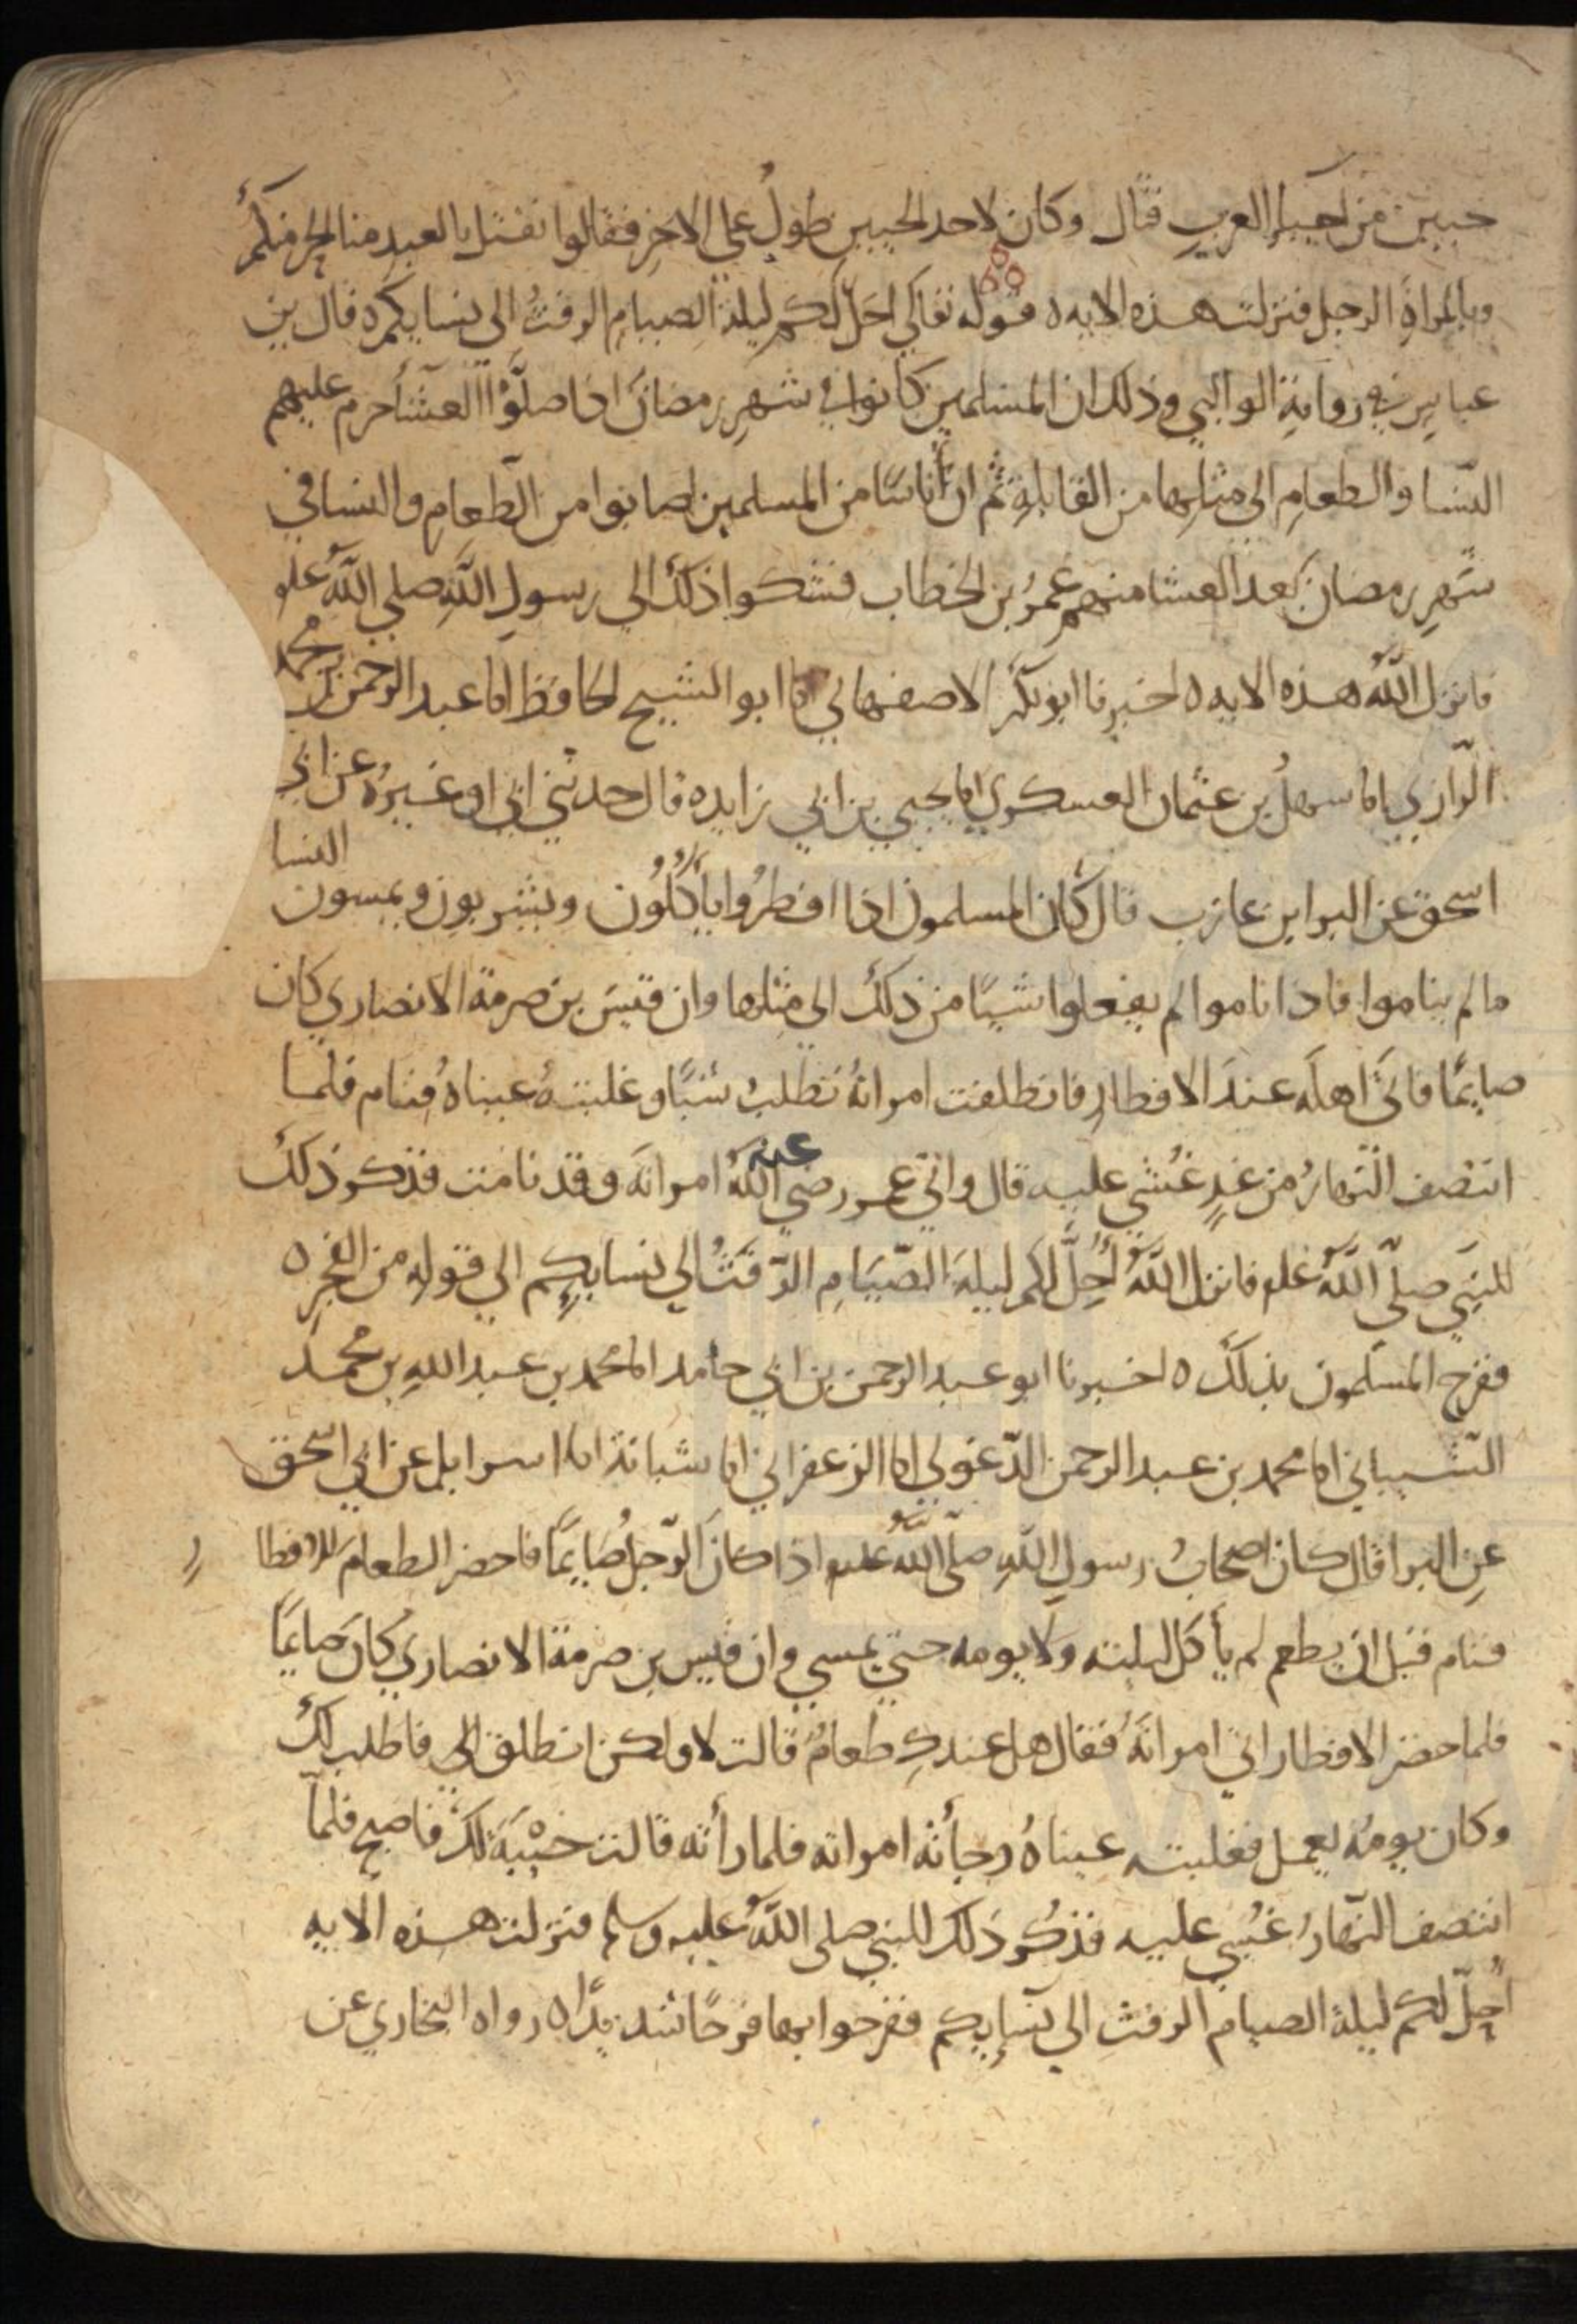 حيين من احياء العرب قتال وكان لاحد الحيين طول على الاخر فقالوا نقتل بالعبد منا الحر منكم
وبالمراة الرجل فنزلت هذه الايه ه قوله تعالى احل لكم ليلة الصيام الرفث الى نسايكم ه قال بن
عباس في رواية الوالبي وذلك ان المسلمين كانوا في شهر رمضان اذا صلوا العشاء حرم عليهم
النسا والطعام الى مثلها من القابلة ثم ان أناسًا من المسلمين اصابوا من الطعام والنسا في
شهر رمضان بعد العشا منهم عمر بن الخطاب فشكوا ذلك الى رسول الله صلى الله علم
فانزل الله هذه الايه ه اخبرنا ابو بكر الاصفهاني انا ابو الشيخ الحافظ انا عبد الرحمن بن محمد
الرازي انا سهل بن عثمان العسكري انا يحيى بن ابي زايده قال حدثني ابي او غيره عن ابي
اسحق عن البرا بن عازب قال كان المسلمون اذا افطروا ياكلون ويشربون ويمسون النسا
ما لم يناموا فاذا ناموا لم يفعلوا شيًا من ذلك الى مثلها وان قيس بن صرمة الانصاري كان
صايمًا فاتى اهله عند الافطار فانطلقت امراته تطلب شيًا وغلبته عيناه فنام فلما
انتصف النهار من غدٍ غشي عليه قال واتى عمر رضي الله عنه امراته وقد نامت فذكر ذلك
للنبي صلى الله علم فانزل الله أُحِلَّ لكم ليلة الصيام الرفث الى نسايكم الى قوله من الفجر ه
ففرح المسلمون بذلك ه اخبرنا ابو عبد الرحمن بن ابي حامد انا محمد بن عبد الله بن محمد
الشيباني انا محمد بن عبد الرحمن الدغولي انا الزعفراني انا شبابة انا اسرايل عن ابي اسحق
عن البرا قال كان اصحاب رسول الله صلى الله علم اذا كان الرجل صايمًا فاحضر الطعام للافطار
فنام قبل ان يطعم لم يأكل ليلته ولا يومه حتى يمسي وان قيس بن صرمة الانصاري كان صايمًا
فلما حضر الافطار اتى امراته فقال هل عندكِ طعام قالت لا ولكن انطلق الى فاطلب لك
وكان يومه يعمل فغلبته عيناه وجأته امراته فلما رأته قالت خيبة لك فاصبح فلما
انتصف النهار غشي عليه فذكر ذلك للنبي صلى الله عليه وسلم فنزلت هذه الايه
أحل لكم ليلة الصيام الرفث الى نسايكم ففرحوا بها فرحًا شديدًا ه رواه البخاري عن